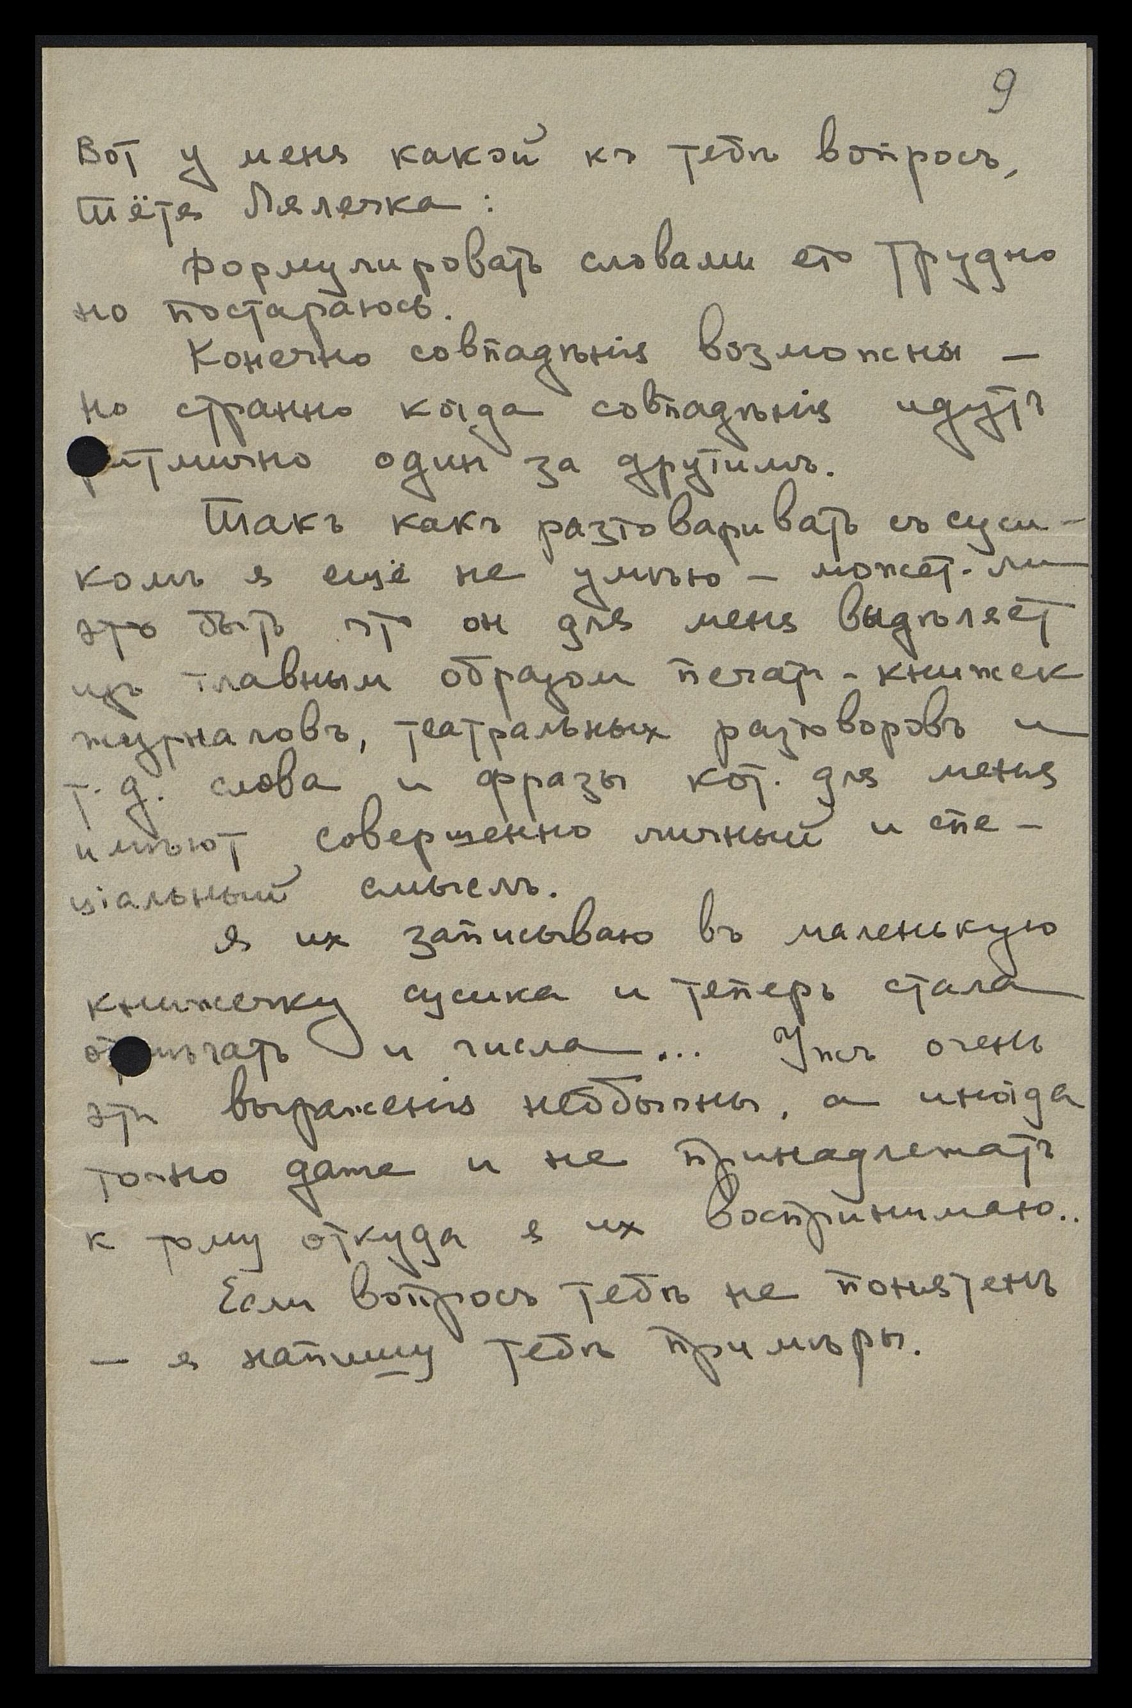 9
Вот у меня какой къ тебѣ вопросъ,
Тётя Лялечка:
Формулировать словами его трудно
но постараюсь.
Конечно совпадѣнія возможны —
но странно когда совпадѣнія идутъ
ритмично один за другимъ.
Такъ какъ разговаривать съ суси-
комъ я ещё не умѣю — может-ли
это быть что он для меня выдѣляет
изъ главным образом печати - книжек
журналовъ, театральных разговоровъ и
т. д. слова и фразы кот. для меня
имѣют совершенно личный и спе-
ціальный смыслъ.
Я их записываю въ маленькую
книжечку сусика и теперь стала
отмѣчать и числа... Ужъ очень
эти выраженія необычны, а иногда
точно даже и не принадлежатъ
к тому откуда я их воспринимаю..
Если вопросъ тебѣ не понятенъ
— я напишу тебѣ примѣры.